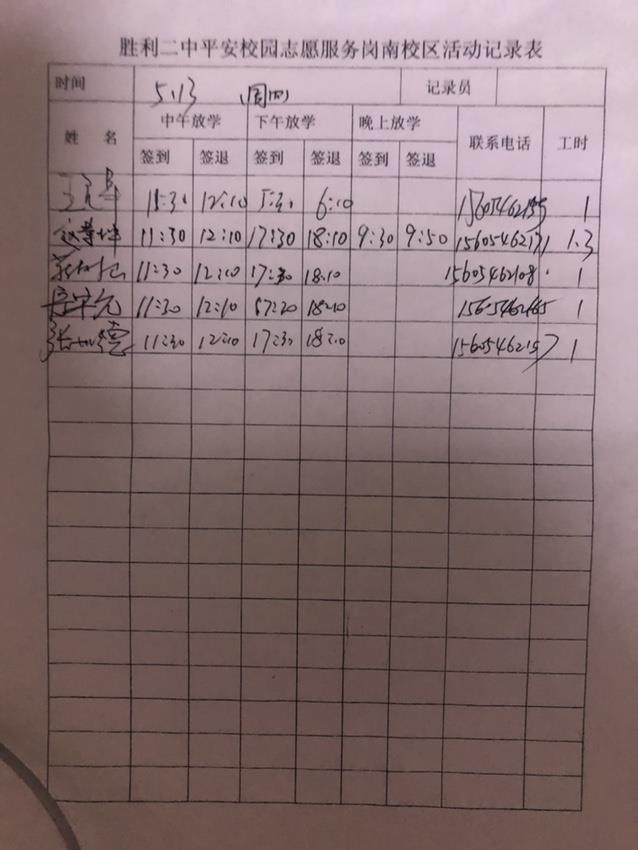 胜利二中平安校园志愿服务岗南校区活动记录表
时间 5.13 (周四) 记录员
姓 名 中午放学 下午放学 晚上放学 联系电话 工时
签到 签退 签到 签退 签到 签退
11:30 12:10 5:30 6:10 1
11:30 12:10 17:30 18:10 9:30 9:50 15605462131 1.3
11:30 12:10 17:30 18:10 15605462108 1
11:30 12:10 18:10 1
11:30 12:10 17:30 18:10 15605462157 1